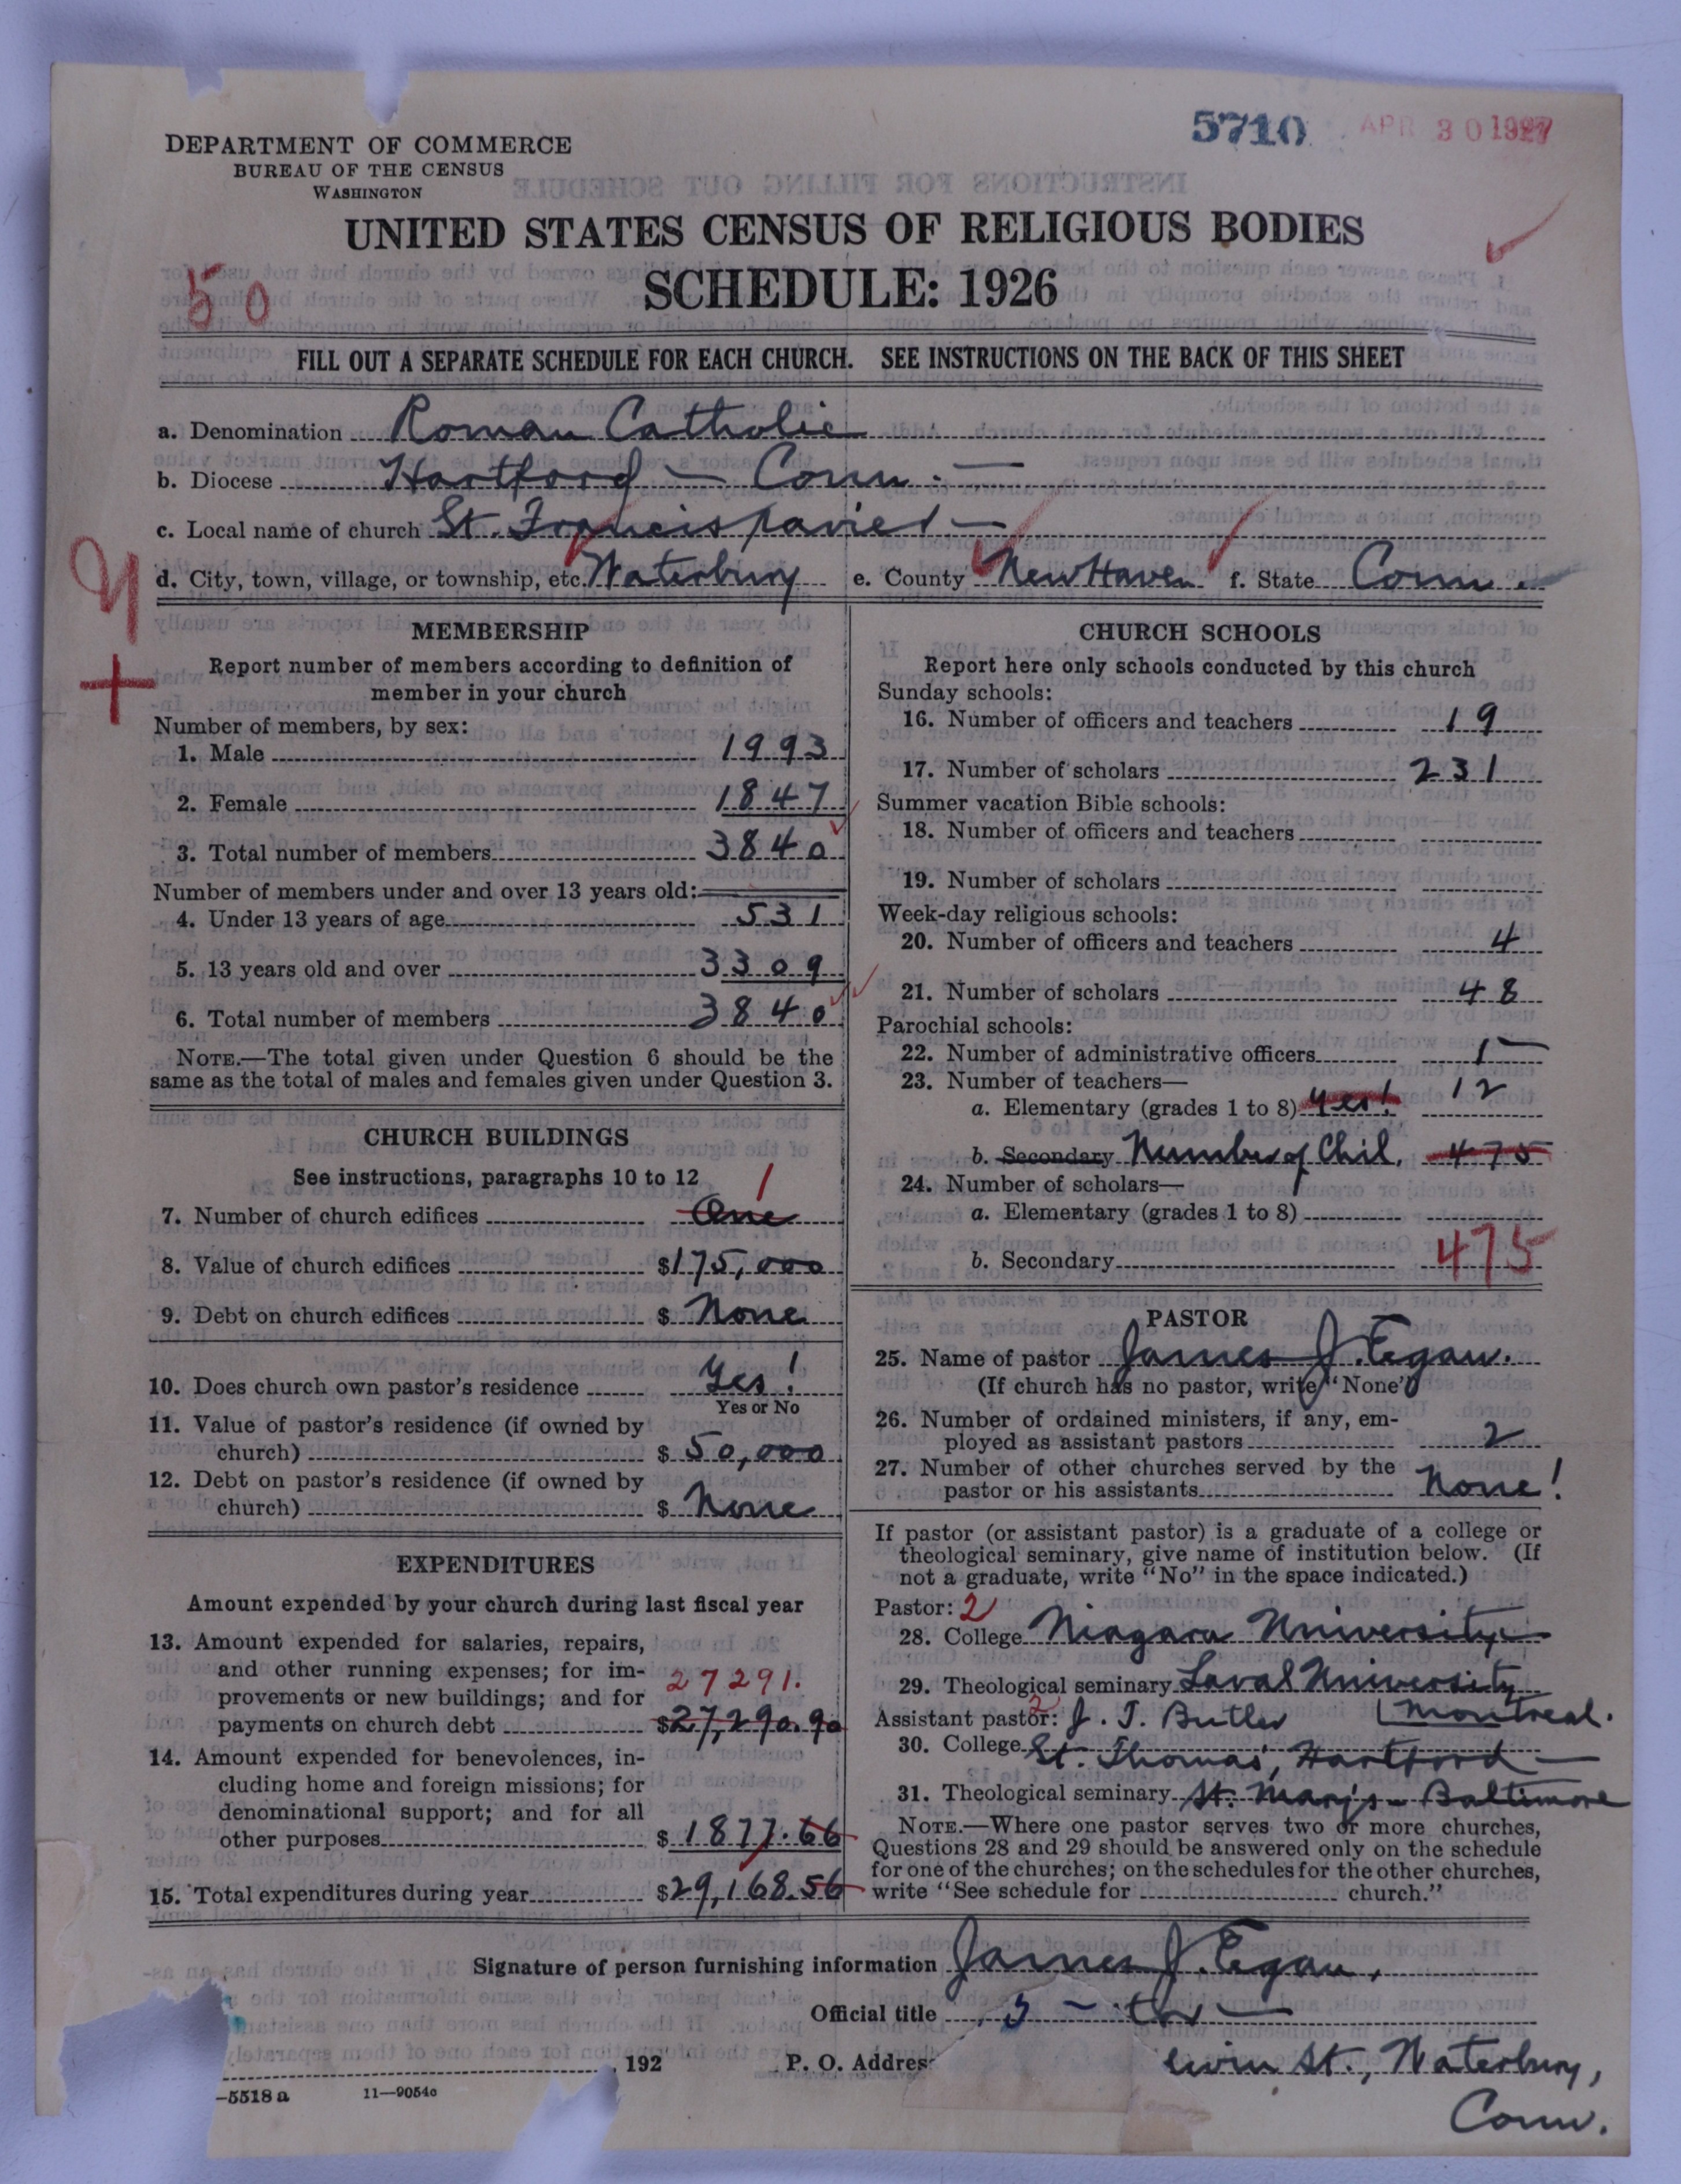 5710 APR 30 1927
DEPARTMENT OF COMMERCE
BUREAU OF THE CENSUS
WASHINGTON
UNITED STATES CENSUS OF RELIGIOUS BODIES
SCHEDULE: 1926
50
FILL OUT A SEPARATE SCHEDULE FOR EACH CHURCH. SEE INSTRUCTIONS ON THE BACK OF THIS SHEET
a. Denomination Roman Catholic
b. Diocese Hartford — Conn. —
c. Local name of church St. Francis Xavier —
d. City, town, village, or township, etc. Waterbury e. County New Haven f. State Conn.
MEMBERSHIP
Report number of members according to definition of
member in your church
Number of members, by sex:
1. Male 1993
2. Female 1847
3. Total number of members 3840
Number of members under and over 13 years old:
4. Under 13 years of age 531
5. 13 years old and over 3309
6. Total number of members 3840
NOTE.—The total given under Question 6 should be the
same as the total of males and females given under Question 3.
CHURCH BUILDINGS
See instructions, paragraphs 10 to 12
1
7. Number of church edifices One
8. Value of church edifices $175,000
9. Debt on church edifices $ None
10. Does church own pastor's residence Yes!
Yes or No
11. Value of pastor's residence (if owned by
church) $ 50,000
12. Debt on pastor's residence (if owned by
church) $ None
EXPENDITURES
Amount expended by your church during last fiscal year
13. Amount expended for salaries, repairs,
and other running expenses; for im-
provements or new buildings; and for 27291.
payments on church debt $27,290.90
14. Amount expended for benevolences, in-
cluding home and foreign missions; for
denominational support; and for all
other purposes $ 1877.66
15. Total expenditures during year $29,168.56
CHURCH SCHOOLS
Report here only schools conducted by this church
Sunday schools:
16. Number of officers and teachers 19
17. Number of scholars 231
Summer vacation Bible schools:
18. Number of officers and teachers
19. Number of scholars
Week-day religious schools:
20. Number of officers and teachers 4
21. Number of scholars 48
Parochial schools:
22. Number of administrative officers 1 —
23. Number of teachers—
a. Elementary (grades 1 to 8) Yes! 12
b. Secondary Number of Chil. 475
24. Number of scholars—
a. Elementary (grades 1 to 8)
b. Secondary 475
PASTOR
25. Name of pastor James J. Egan.
(If church has no pastor, write "None")
26. Number of ordained ministers, if any, em-
ployed as assistant pastors 2
27. Number of other churches served by the
pastor or his assistants None!
If pastor (or assistant pastor) is a graduate of a college or
theological seminary, give name of institution below. (If
not a graduate, write "No" in the space indicated.)
Pastor: 2
28. College Niagara University —
29. Theological seminary Laval University
Montreal.
Assistant pastor: 2 J. T. Butler
30. College St. Thomas', Hartford —
31. Theological seminary St. Mary's — Baltimore
NOTE.—Where one pastor serves two or more churches,
Questions 28 and 29 should be answered only on the schedule
for one of the churches; on the schedules for the other churches,
write "See schedule for church."
Signature of person furnishing information James J. Egan.
Official title
192 P. O. Addres
St., Waterbury,
Conn.
—5518 a 11—9054c